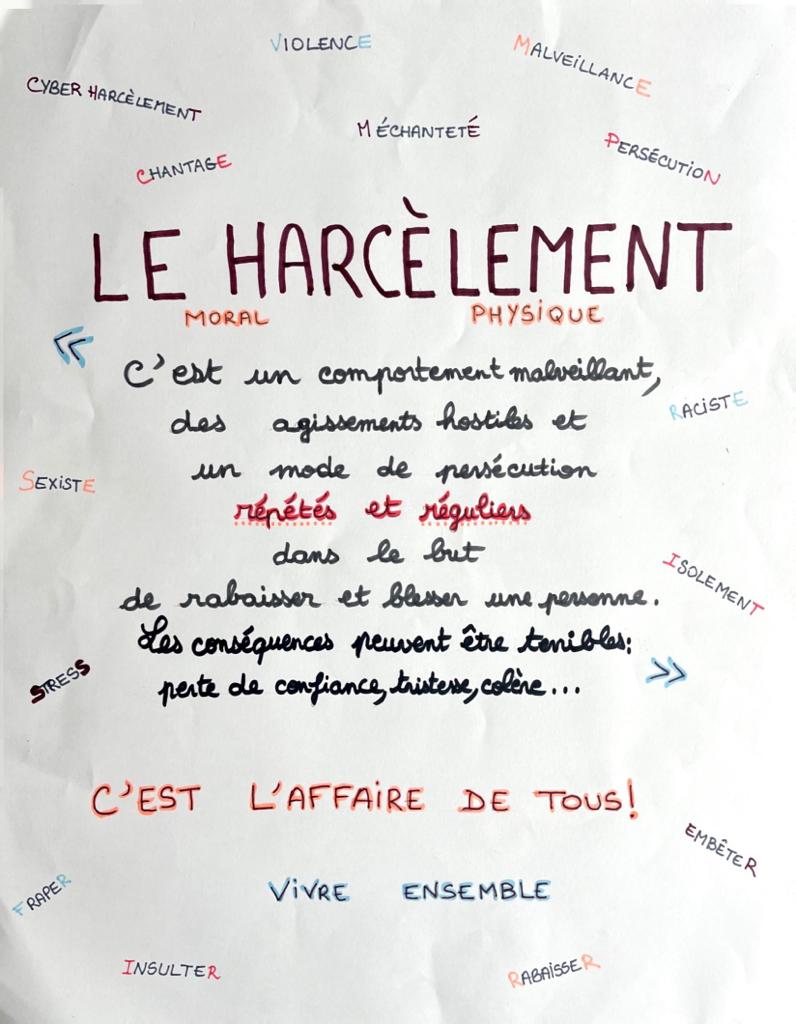 VIOLENCE
MALVEILLANCE
CYBER HARCÈLEMENT
MÉCHANTETÉ
PERSÉCUTION
CHANTAGE
LE HARCÈLEMENT
MORAL PHYSIQUE
« C'est un comportement malveillant,
des agissements hostiles et
RACISTE
un mode de persécution
SEXISTE
répétés et réguliers
dans le but
ISOLEMENT
de rabaisser et blesser une personne.
Les conséquences peuvent être terribles:
STRESS
perte de confiance, tristesse, colère... »
C'EST L'AFFAIRE DE TOUS!
EMBÊTER
FRAPER
VIVRE ENSEMBLE
INSULTER
RABAISSER